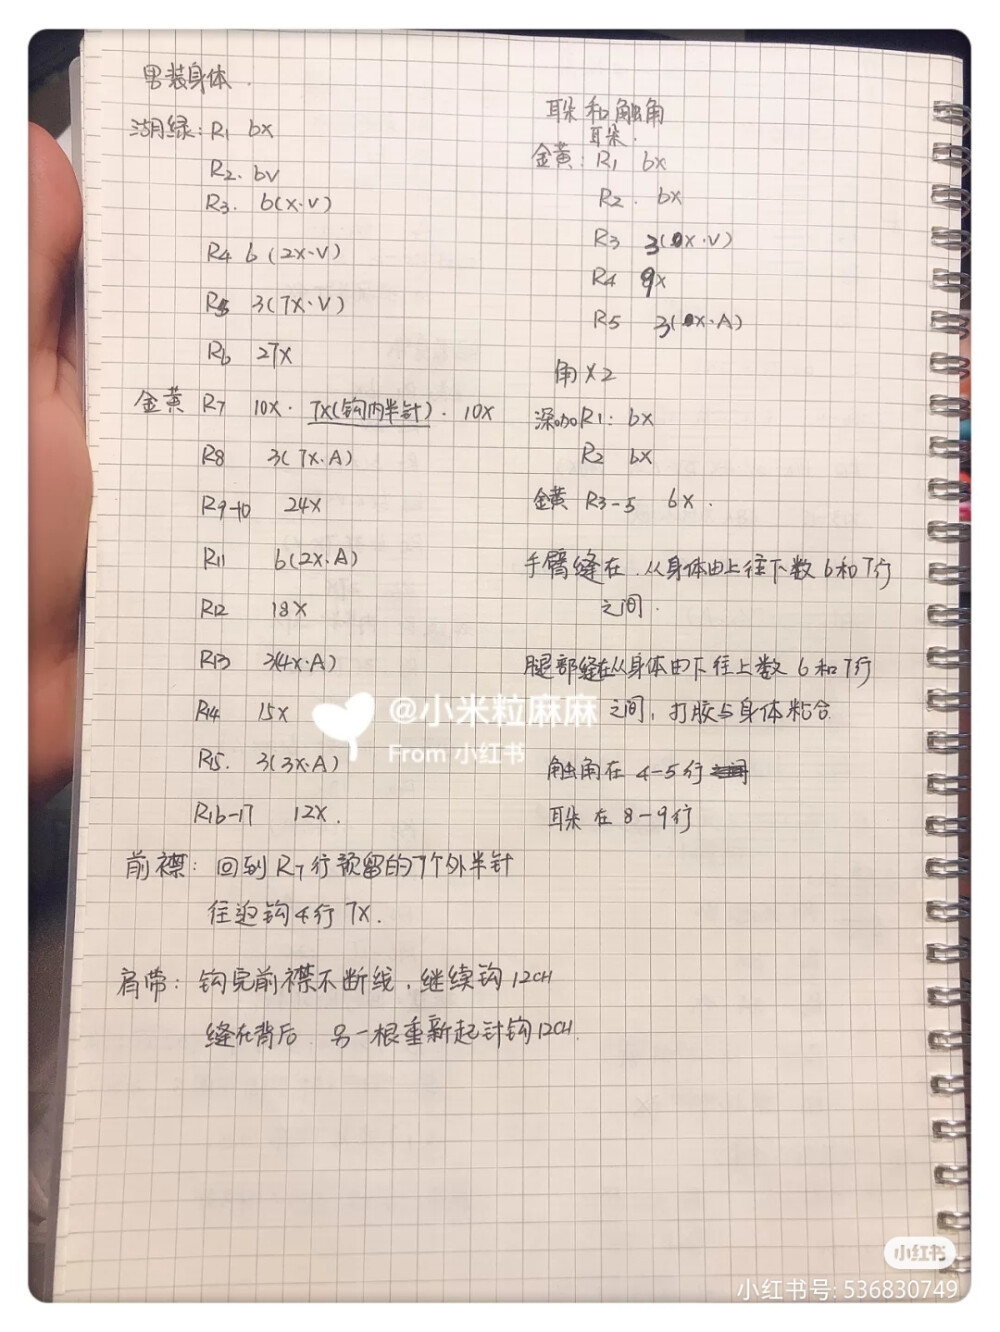 男装身体.
湖绿: R1 6x
R2. 6v
R3. 6(x·v)
R4 6 (2x·v)
R5 3(7x·v)
R6 27x
金黄 R7 10x · 7x(钩内半针) · 10x
R8 3(7x·A)
R9-10 24x
R11 6(2x·A)
R12 18x
R13 3(4x·A)
R14 15x
R15. 3(3x·A)
R16-17 12x.
前襟: 回到R7行预留的7个外半针
往返钩4行 7x.
肩带: 钩完前襟不断线,继续钩12CH
缝在背后 另一根重新起针钩12CH.
耳朵和触角
耳朵.
金黄: R1 6x
R2. 6x
R3 3(x·v)
R4 9x
R5 3(x·A)
角x2
深咖R1: 6x
R2 6x
金黄 R3-5 6x.
手臂缝在.从身体由上往下数6和7行
之间.
腿部缝在从身体由下往上数6和7行
之间,打胶与身体粘合
触角在4-5行
耳朵在8-9行
@小米粒麻麻
From 小红书
小红书
小红书号: 536830749